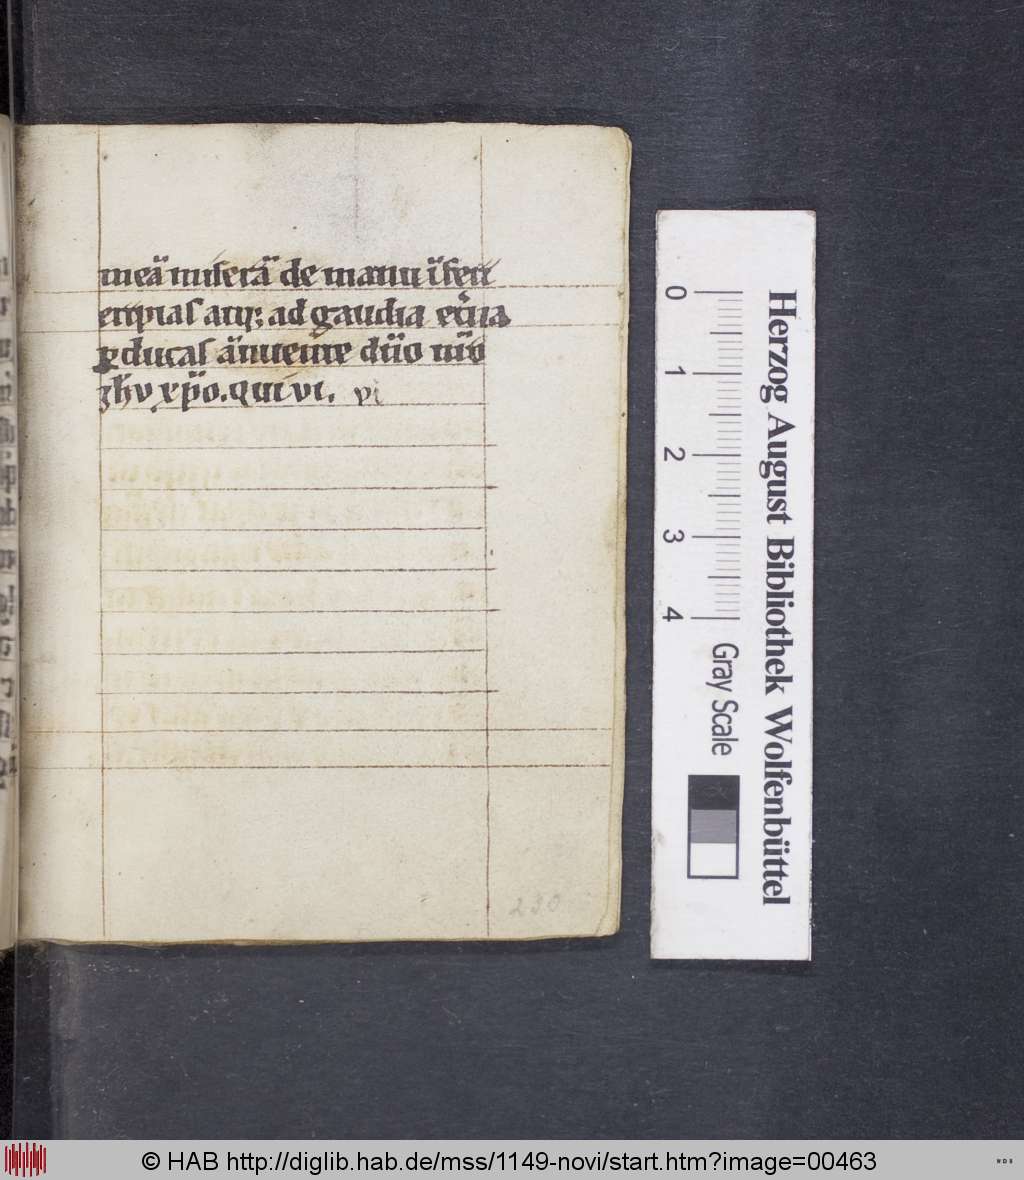 meā miserā de manu īferi
eripias atq; ad gaudia et'na
ꝑducas ānuente dño nr̄o
ihv xp̄o. qui vi. vi
230
Herzog August Bibliothek Wolfenbüttel
0 1 2 3 4 Gray Scale
© HAB http://diglib.hab.de/mss/1149-novi/start.htm?image=00463